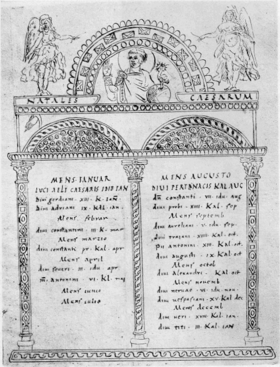 NATALES CAESARUM
MENS IANUAR
LUCI AELI CAESARIS IDIB IAN
Divi gordiani XIII · K · 
Divi Adriani IX · Kal · 
Mens februar
divi constantini III K mar
Mens martio
divi constanti pr · Kal · apr
Mens april
divi severi · III · idu · apr
M · antonini VI Kl
Mens iunio
Mens iulio
MENS AUGUSTO
DIVI PERTENACIS KAL AUG
constanti · VII · idu · aug
divi probi · XIIII · Kal · sep
Mens septemb
divi aureliani · V · idu · sep
divi traiani · XIIII · Kal · oct
pii antonini XIII Kal oct
divi augusti · IX Kal oct
Mens octob
divi Alexandri · Kal oct
Mens novemb
divi nervae · VI · idu · nov
divi vespasiani · XV Kal dec
Mens decemb
divi veri · XVIII · Kal · ian
divi titi · III · Kal · IAN